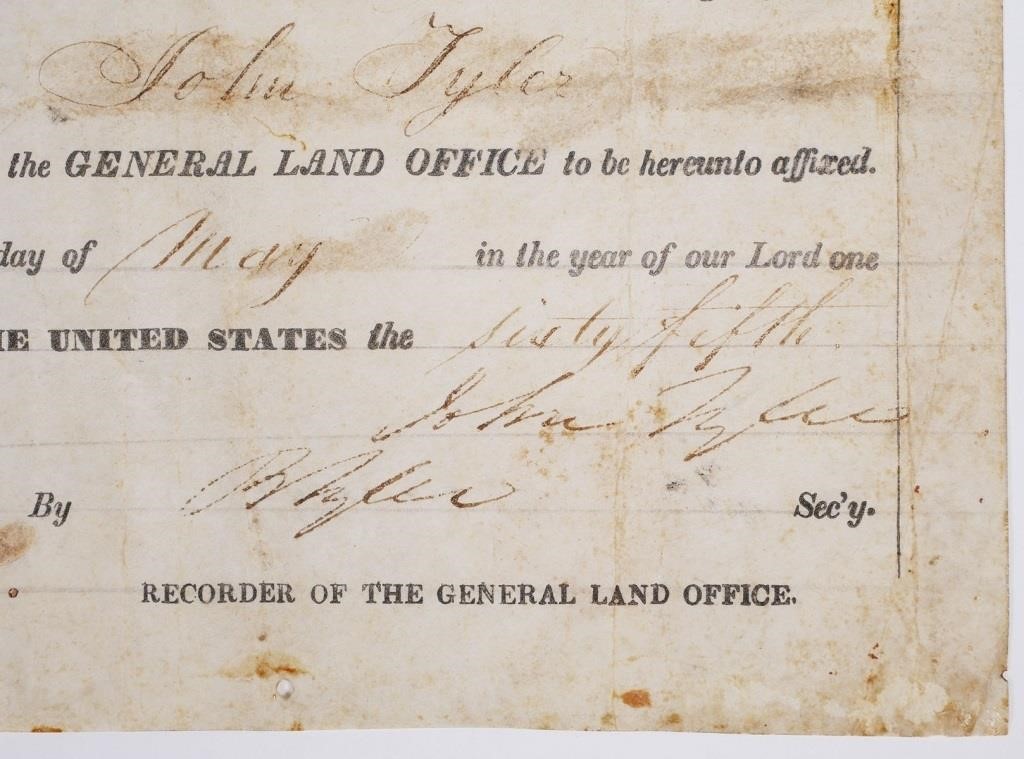 John Tyler
the GENERAL LAND OFFICE to be hereunto affixed.
day of May in the year of our Lord one
HE UNITED STATES the sixty fifth
John Tyler
By R Tyler Sec'y.
RECORDER OF THE GENERAL LAND OFFICE.